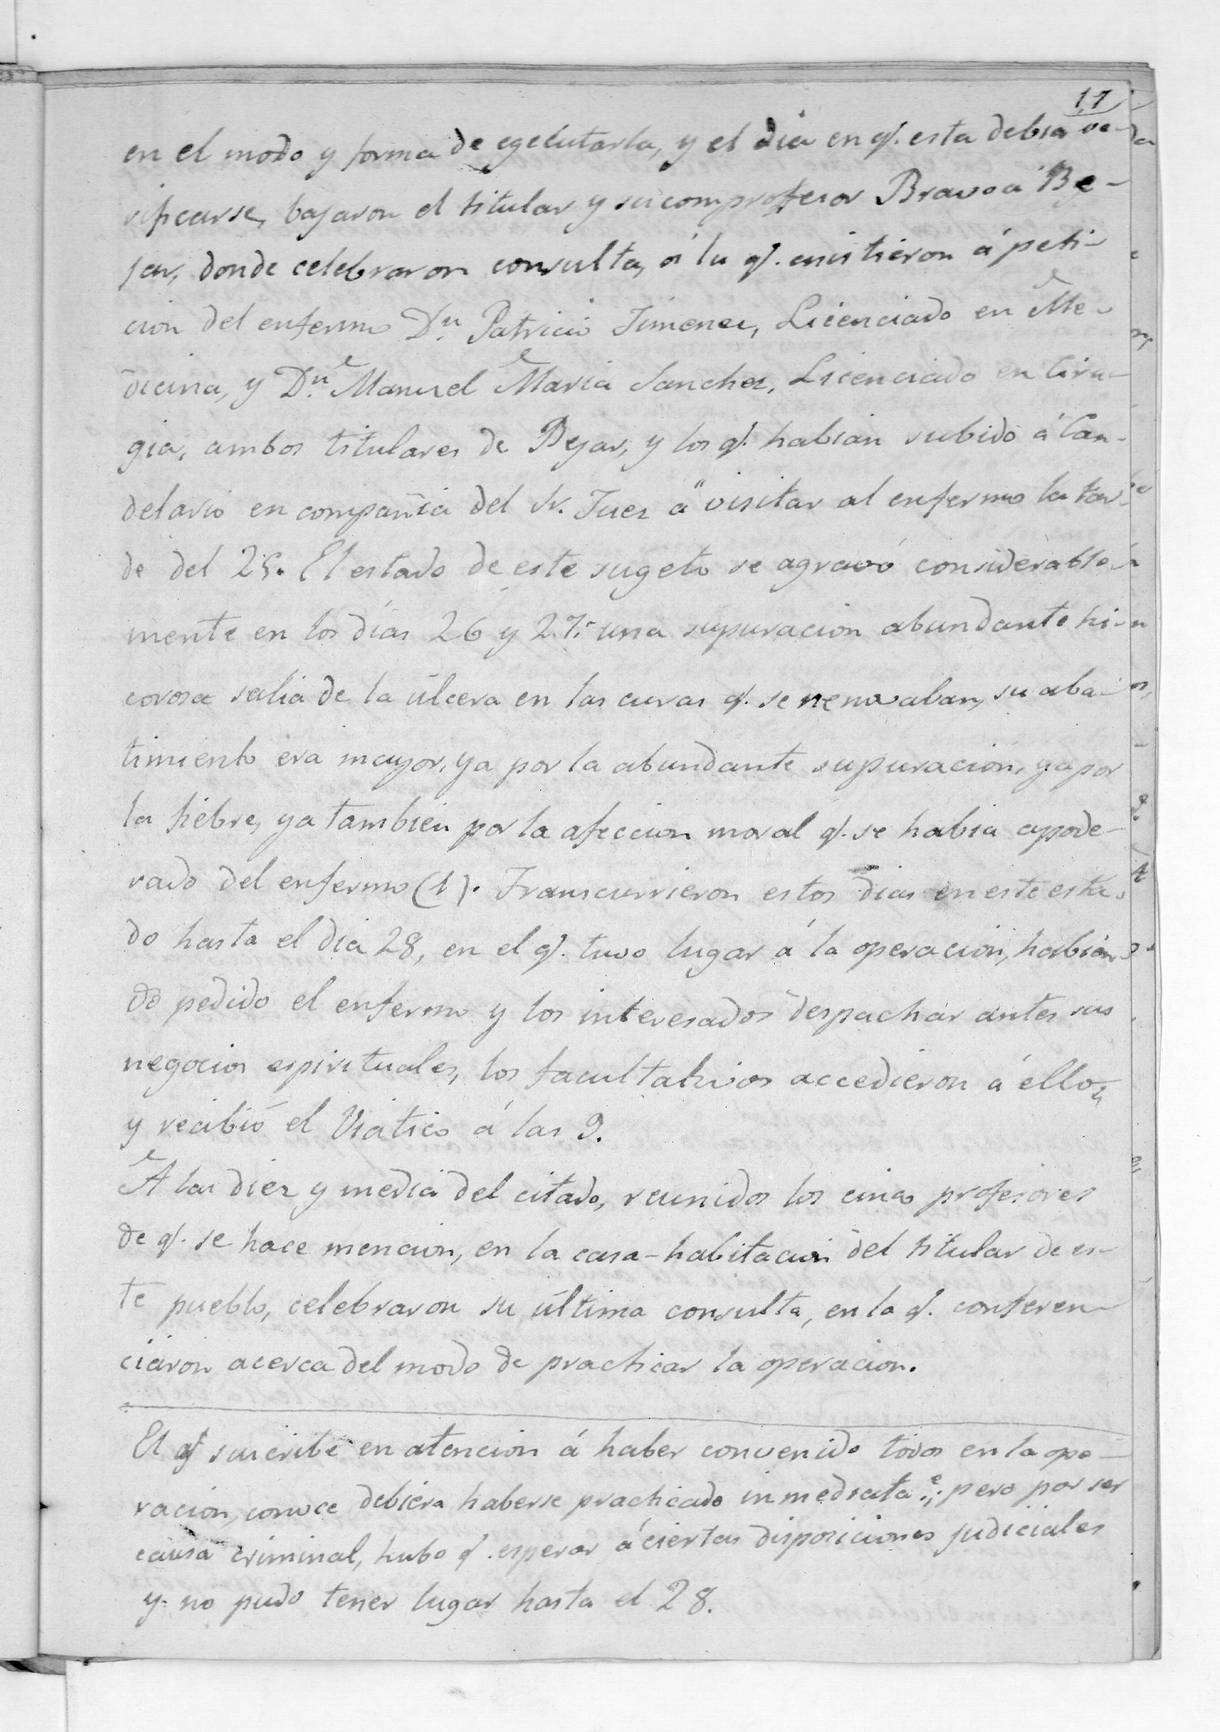 11
en el modo y forma de egecutarla, y el dia en q.e esta debia ve-
rificarse, bajaron el titular y su comprofesor Bravo á Be-
jar, donde celebraron consulta, á la q.e asistieron á peti-
cion del enfermo D.n Patricio Jimenez, Licenciado en Me-
dicina, y D.n Manuel Maria Sanchez, Licenciado en Ciru-
gia, ambos titulares de Bejar, y los q.e habian subido á Can-
delario en compañia del Sr. Juez á visitar al enfermo la tar-
de del 25. El estado de este sugeto se agravó considerable-
mente en los dias 26 y 27: una supuracion abundante hi-
corosa salia de la úlcera en las curas q.e se renovaban, su aba-
timiento era mayor, ya por la abundante supuracion, ya por
la fiebre, ya tambien por la afeccion moral q.e se habia apode-
rado del enfermo (1). Transcurrieron estos dias en este esta-
do hasta el dia 28, en el q.e tuvo lugar á la operacion, habien-
do pedido el enfermo y los interesados despachar antes sus
negocios espirituales, los facultativos accedieron á ello,
y recibió el Viatico á las 9.
A las diez y media del citado, reunidos los cinco profesores
de q.e se hace mencion, en la casa-habitacion del titular de es-
te pueblo, celebraron su última consulta, en la q.e conferen-
ciaron acerca del modo de practicar la operacion.
El q.e suscribe en atencion á haber convenido todos en la ope-
racion, conoce debiera haberse practicado inmediata.e; pero por ser
causa criminal, hubo q.e esperar á ciertas disposiciones judiciales
y no pudo tener lugar hasta el 28.